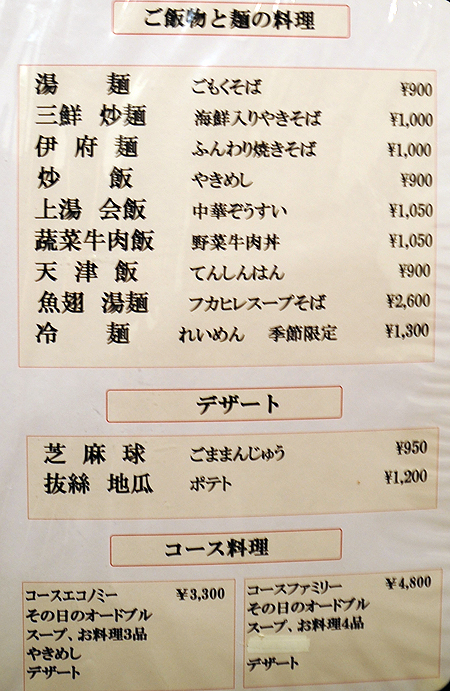 ご飯物と麺の料理
湯 麺 ごもくそば ¥900
三鮮 炒麺 海鮮入りやきそば ¥1,000
伊 府 麺 ふんわり焼きそば ¥1,000
炒 飯 やきめし ¥900
上湯 会飯 中華ぞうすい ¥1,050
蔬菜牛肉飯 野菜牛肉丼 ¥1,050
天 津 飯 てんしんはん ¥900
魚翅 湯麺 フカヒレスープそば ¥2,600
冷 麺 れいめん 季節限定 ¥1,300
デザート
芝 麻 球 ごままんじゅう ¥950
抜絲 地瓜 ポテト ¥1,200
コース料理
コースエコノミー ¥3,300
その日のオードブル
スープ、お料理3品
やきめし
デザート
コースファミリー ¥4,800
その日のオードブル
スープ、お料理4品
デザート